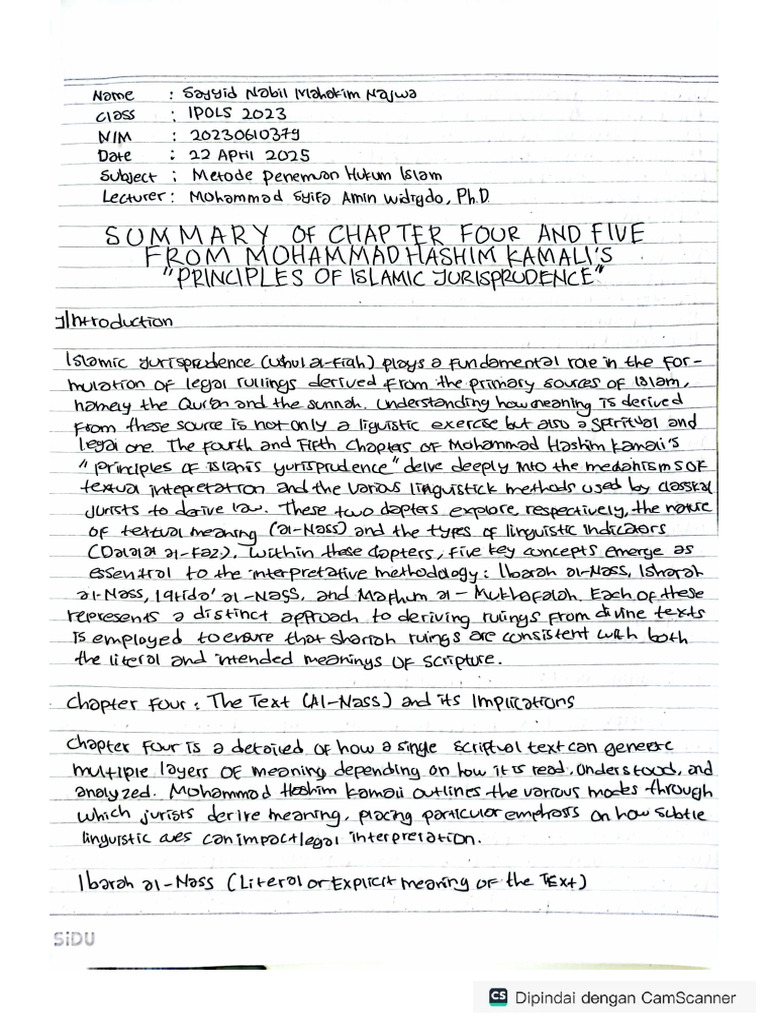 Name : Sayyid Nabil Mahakim Najwa
Class : IPOLS 2023
NIM : 20230610379
Date : 22 April 2025
Subject : Metode Penemuan Hukum Islam
Lecturer : Mohammad Syifa Amin Widigdo, Ph.D
SUMMARY OF CHAPTER FOUR AND FIVE
FROM MOHAMMAD HASHIM KAMALI'S
"PRINCIPLES OF ISLAMIC JURISPRUDENCE"
Introduction
Islamic Jurisprudence (Ushul al-Fiqh) plays a fundamental role in the for-
mulation of legal rullings derived from the primary sources of Islam,
namely the Quran and the sunnah. Understanding how meaning is derived
from these source is not only a liguistic exercise but also a spiritual and
legal one. The Fourth and Fifth Chapters of Mohammad Hashim Kamali's
"principles of islamis yurisprudence" delve deeply into the mechanisms of
textual intepretation and the various linguistick methods used by classical
Jurists to derive law. These two chapters explore, respectively, the nature
of textual meaning (al-Nass) and the types of linguistic indicators
(Dalalat al-Faz). Within these chapters, five key concepts emerge as
essential to the interpretative methodology: Ibarah al-Nass, Isharah
al-Nass, Iqtida' al-Nass, and Mafhum al-Mukhafalah. Each of these
represents a distinct approach to deriving rulings from divine texts
is employed to ensure that shariah rulings are consistent with both
the literal and intended meanings of scripture.
Chapter Four : The Text (Al-Nass) and its Implications
Chapter Four is a detailed of how a single scriptual text can generate
multiple layers of meaning depending on how it is read, understood, and
analyzed. Mohammad Hashim Kamali outlines the various modes through
which jurists derive meaning, placing particular emphasis on how subtle
linguistic cues can impact legal interpretation.
Ibarah al-Nass (Literal or Explicit meaning of the Text)
SiDU
CS Dipindai dengan CamScanner